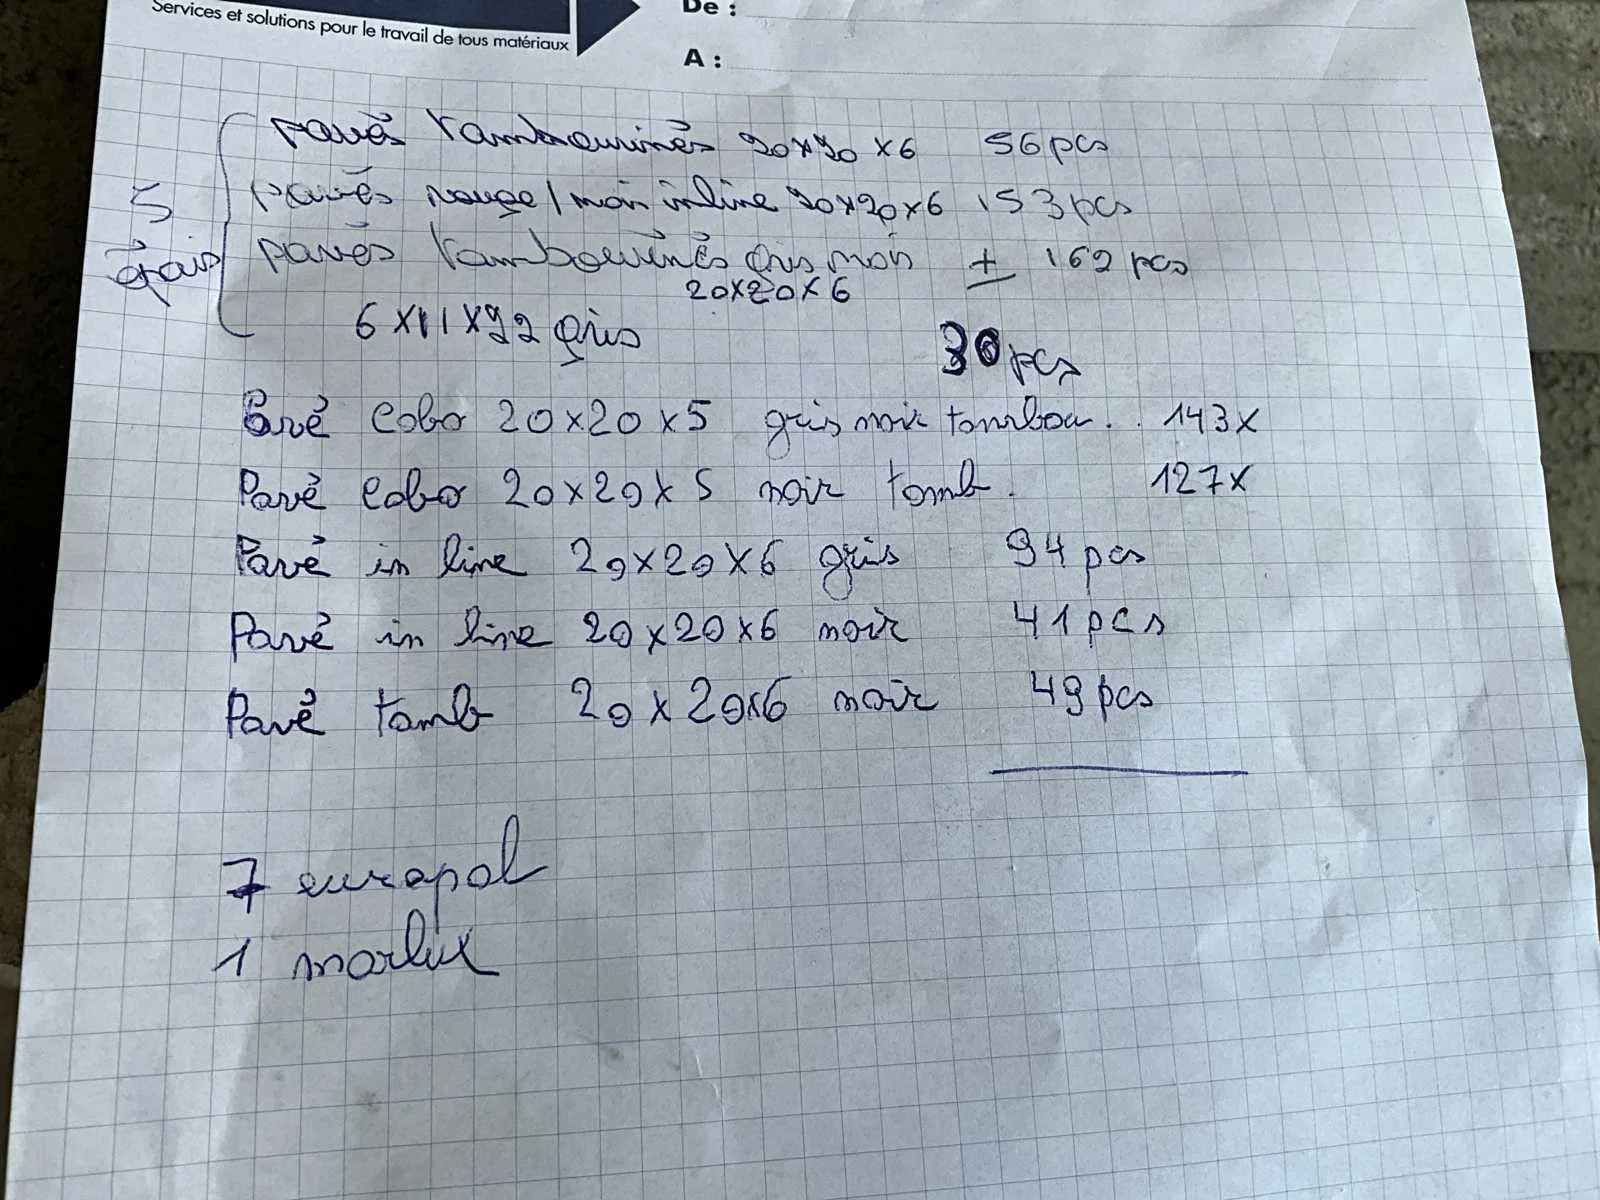 Services et solutions pour le travail de tous matériaux
De :
A :
pavés tambourinés 20x20 x6 56 pcs
pavés rouge/noir inline 20x20x6 153 pcs
5
pavés tambourinés gris noir ± 162 pcs
20x20x6
6x11x22 gris
30 pcs
Pavé cobo 20x20x5 gris noir tambou.. 143x
Pavé cobo 20x20x5 noir tamb. 127x
Pavé in line 20x20x6 gris 94 pcs
Pavé in line 20x20x6 noir 41 pcs
Pavé tamb 20x20x6 noir 49 pcs
7 europal
1 marlux